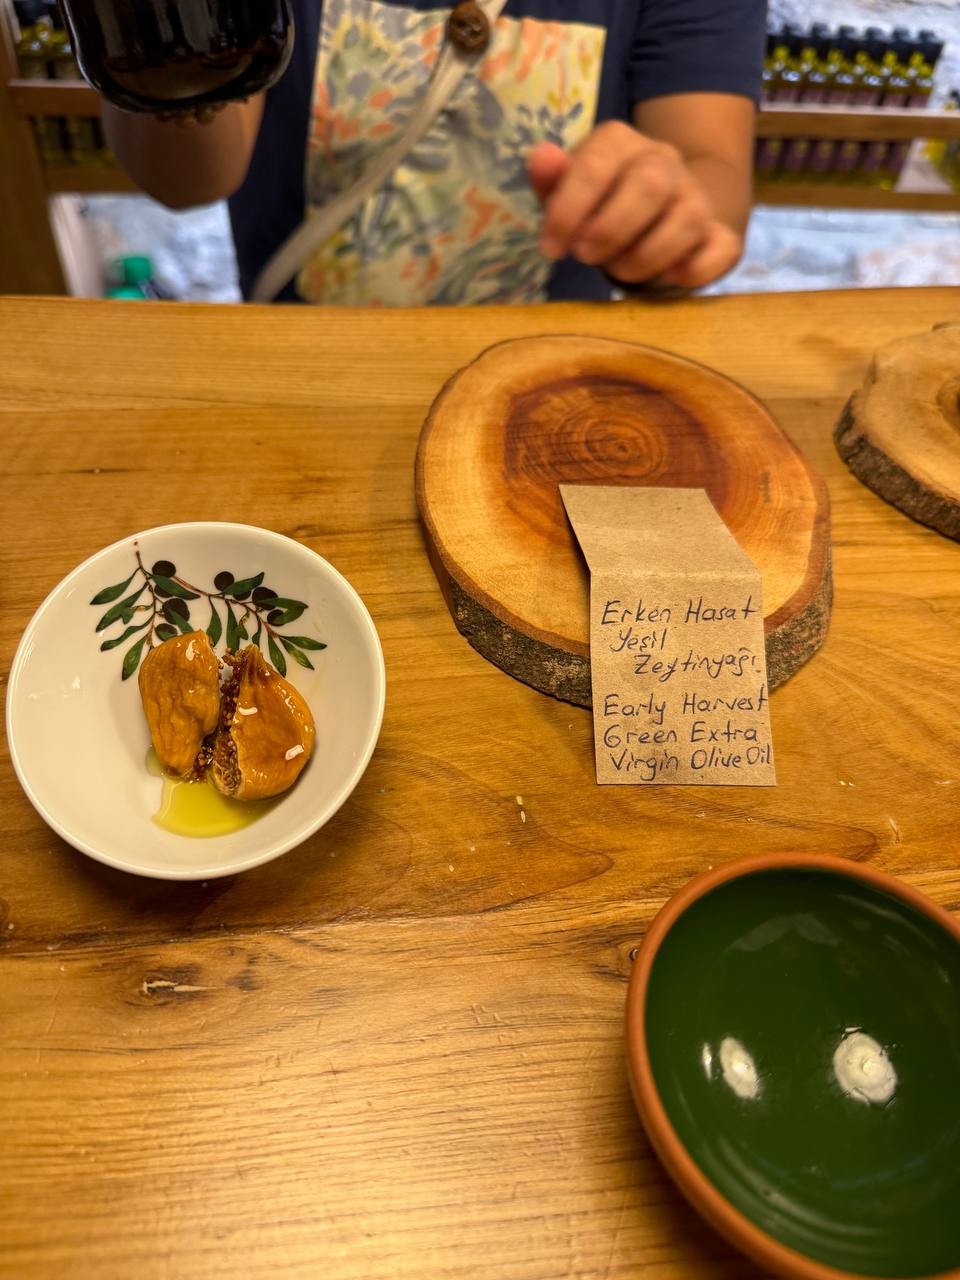 Erken Hasat
Yeşil
Zeytinyağı.
Early Harvest
Green Extra
Virgin Olive Oil